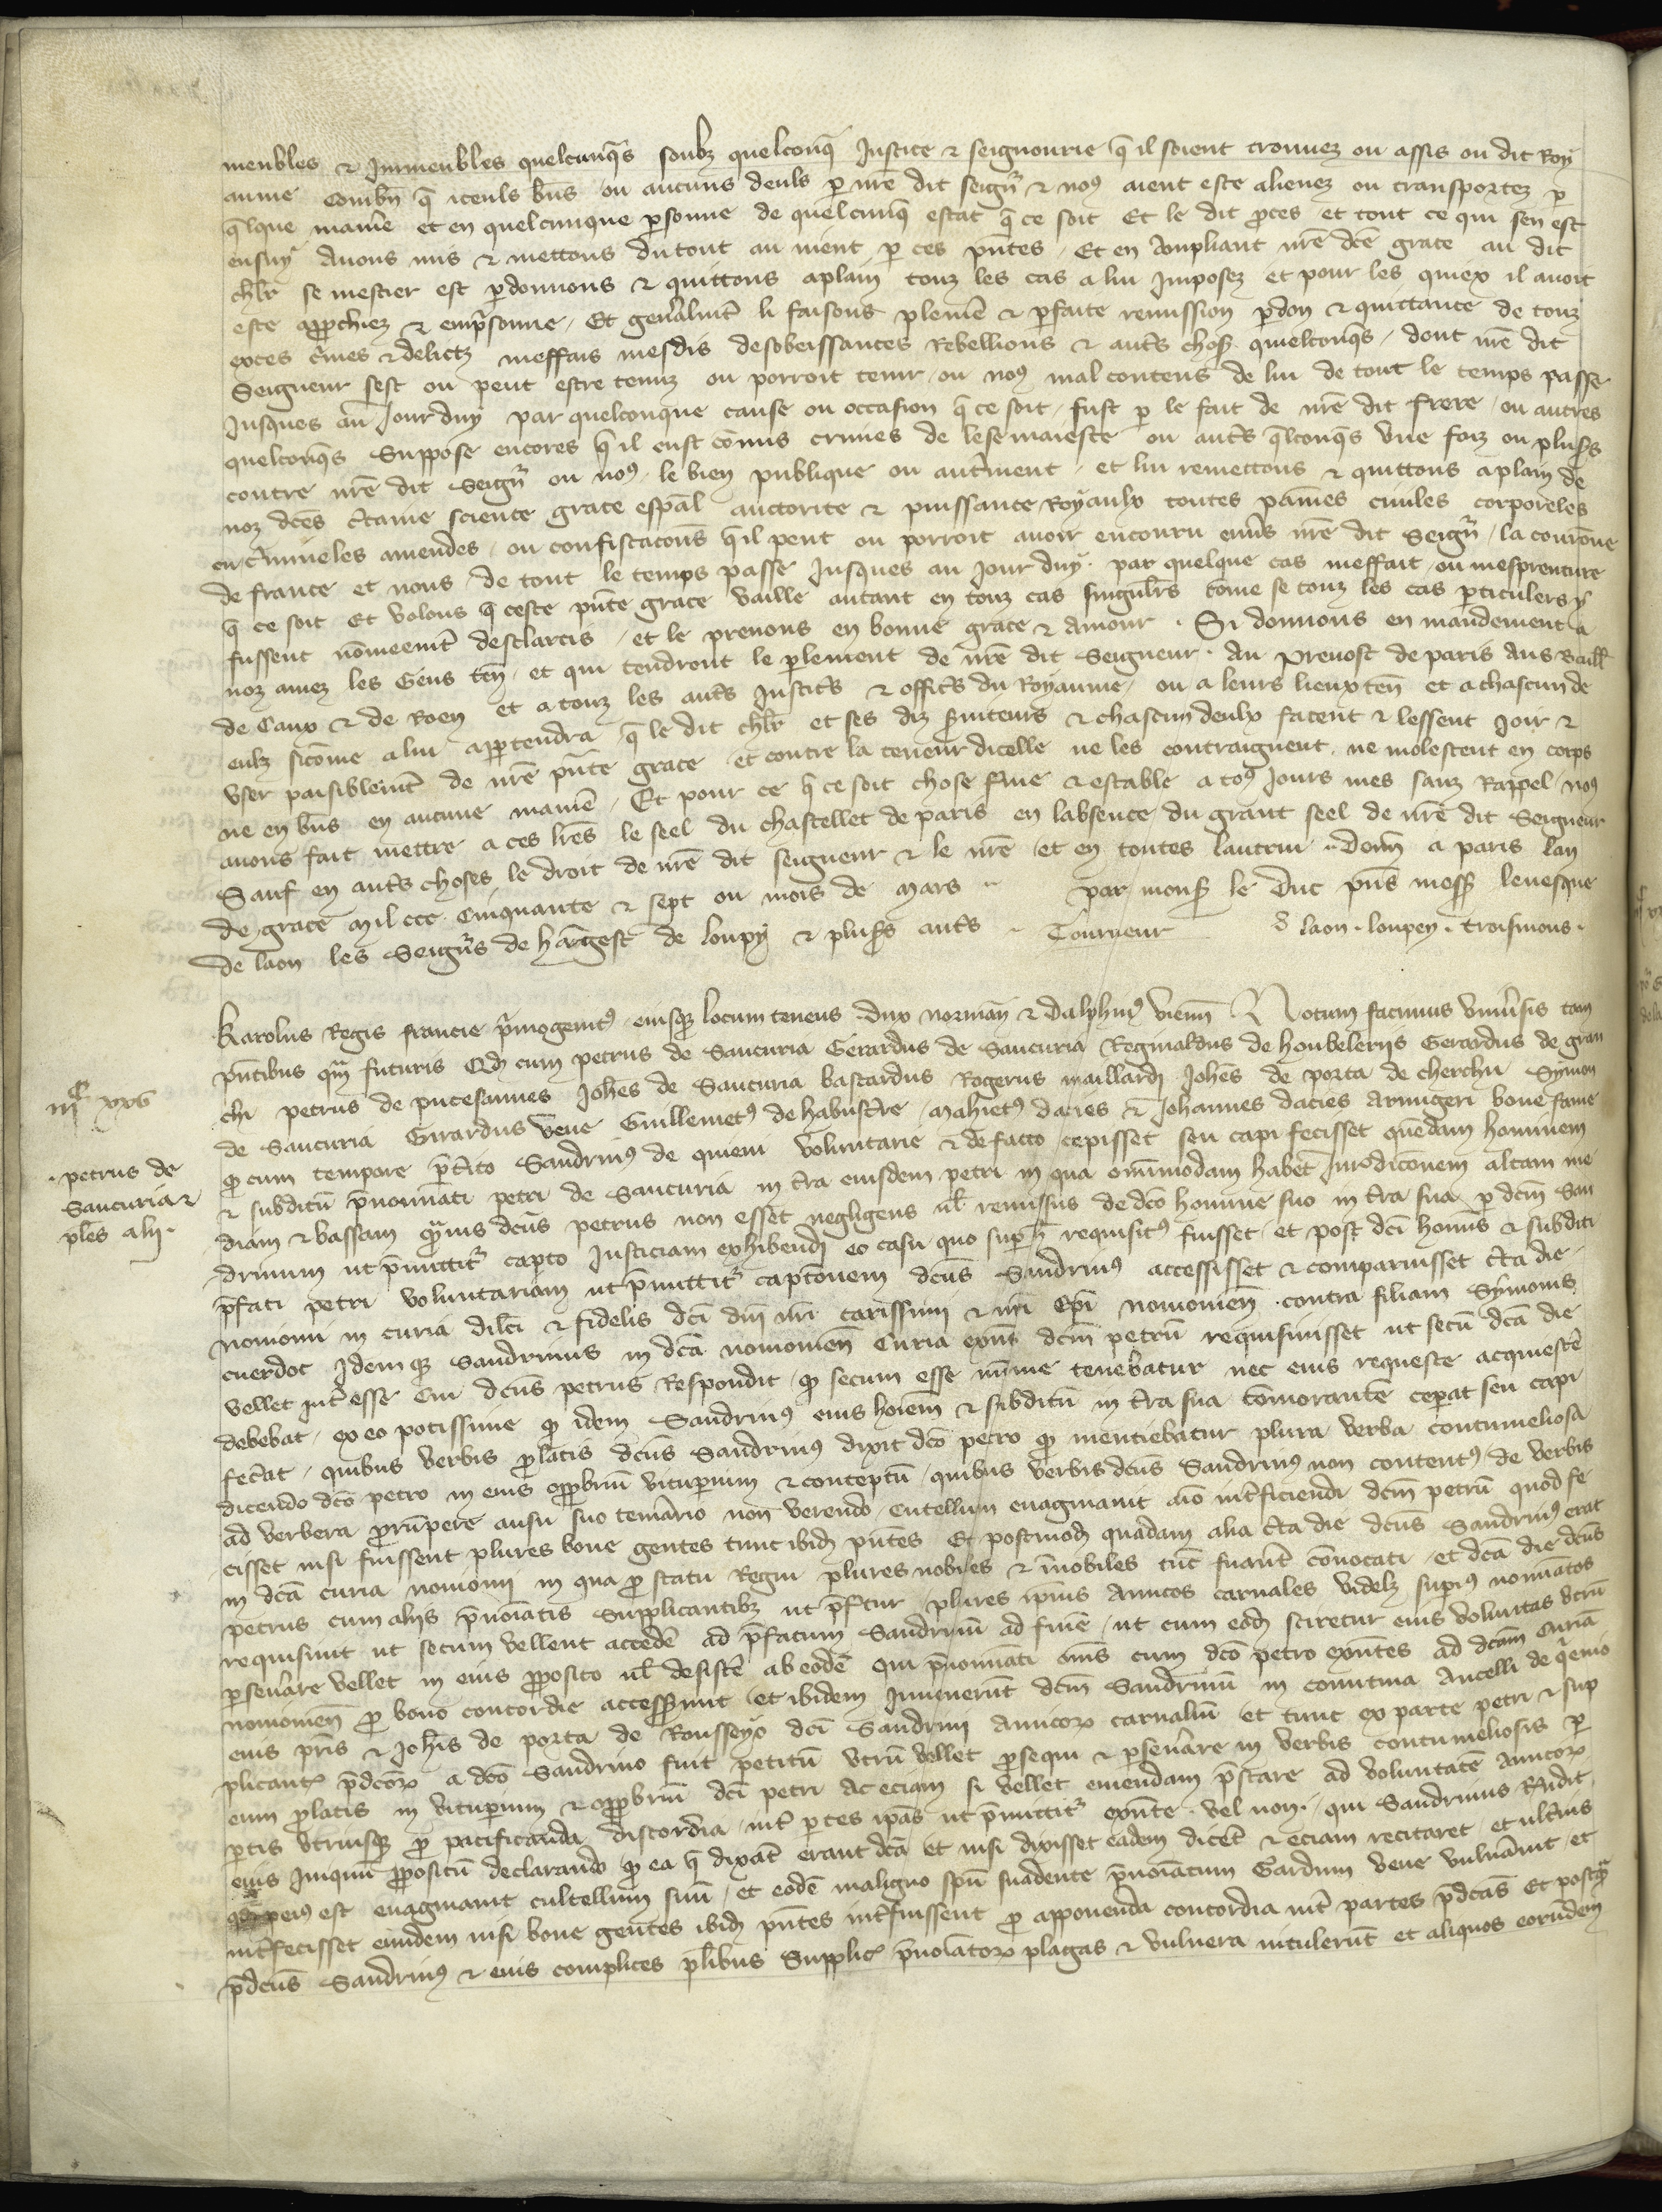 meubles & Immeubles quelcunqs soubz quelconq Justice & seignourie q il soient trouuez ou assis ou dit Roy
aume Combn q iceuls bns ou aucuns deuls p nre dit seignr & nous aient este alienez ou transportez p
qlque manie et en quelcunque psonne de quelcunq estat q ce soit Et le dit pces et tout ce qui sen est
ensuy Auons mis & mettons du tout au nient p ces pntes / Et en Ampliant nre dce grace au dit
chlr se mestier est pdonnons & quittons aplain touz les cas a lui Imposez et pour les quiex il auoit
este approchiez & emprisonne / Et genalmt li faisons pleine & pfaite remission pdon & quittance de touz
exces cimes & delictz meffais mesdis desobeissances Rebellions & auts choses quelconqs / dont nre dit
Seigneur sest ou peut estre tenuz ou porroit tenir / ou nous mal contens de lui de tout le temps passe
Jusques au Jourduy par quelconque cause ou occasion q ce soit / fust p le fait de nre dit frere / ou autres
quelconqs Suppose encores q il eust comis crimes de lese maieste ou auts qlconqs vne foiz ou plusrs
contre nre dit Seignr ou nous / le bien publique ou autment / et lui remettons & quittons aplain de
noz dces ctaine science grace espal auctorite & puissance Royaulx toutes paines ciuiles corporeles
criimineles amendes / ou confiscacons q il peut ou porroit auoir encouru enuers nre dit Seignr / la couronne
de france et nous de tout le temps passe Jusques au Jour duy / par quelque cas meffait / ou mesprenture
q ce soit Et volons q ceste pnte grace vaille autant en touz cas singulrs come se touz les cas pticulers y
fussent nomeemt desclarcis / et le prenons en bonne grace & amour . Si donnons en mandement a
noz amez les Gens ten / et qui tendront le plement de nre dit Seigneur . Au preuost de paris Aus Baill
de Caux & de Roen et a touz les auts Justices & offices du Royaume / ou a leurs lieux ten et a chascun de
eulz sicome a lui apptendra q le dit chlr et ses diz seruiteurs & chascun deulx facent & lessent Joir &
vser paisiblemt de nre pnte grace et contre la teneur dicelle ne les contraignent . ne molestent en corps
ne en bns en aucune manie / Et pour ce q ce soit chose ferme & estable a tous Jours mes sanz Rappel / nous
auons fait mettre a ces lres le seel du chastellet de paris en labsence du grant seel de nre dit Seigneur
Sauf en auts choses le droit de nre dit seigneur & le nre et en toutes lautrui . Donn a paris lan
de grace Mil ccc Cinquante & sept ou mois de Mars .. par mons le Duc pns messrs leuesque
de laon les Seignrs de hangest de loupy & plusrs auts .. Tourneur laon . loupey . troismons .
Karolus Regis francie pmogenitus / eiusque locum tenens . Dux Norman & Dalphinus vienn Notum facimus vniusis tam
pntibus qm futuris Qd cum petrus de Saucuria Gerardus de Saucuria Reginaldus de houbelerijs Gerardus de gran
chi petrus de putesaines Johes de Saucuria bastardus Rogerus maillardi Johes de porta de cherchu Symon
de Saucuria Girardus vene Guillemetus de habustre / Mahietus dacies & Johannes dacies Armigeri bone fame
q cum tempore ptito Sandrinus de quieni voluntarie & defacto cepisset seu capi fecisset quendam hominem
& subditu pnominati petri de Saucuria in tra eiusdem petri in qua omnimodam habet Jurisdiconem altam me
diam & bassam qmuis dcus petrus non esset negligens ul remissus de dco homine suo in tra sua p dcm San
drinum ut pmittitr capto Justiciam exhibendi eo casu quo sup h requisitus fuisset / et post dci homis & subditi
pfati petri voluntariam ut pmittitr captionem dcus Sandrinus accessisset & comparuisset cta die
nouiomi in curia dilci & fidelis dci dni nri carissimi & nri Epi nouiomen . contra filiam Symonis
cuerdoc Idemque Sandrinus in dca nouiomen Curia expns dcm petru requisiuisset ut secu dca die
vellet int esse Cui dcus petrus Respondit / q secum esse minime tenebatur nec eius requeste acquiesce
debebat / ex eo potissime q idem Sandrinus eius hoiem & subditu in tra sua comorante ceperat seu capi
fecat / quibus verbis platis dcus Sandrinus dixit dco petro q mentiebatur plura verba contumeliosa
dicendo dco petro in eius opprobriu vituperium & conteptu / quibus verbis dcus Sandrinus non contentus / de verbis
ad verbera prumpere ausu suo temario non verendo cutellum euaginauit aio intficiendi dcm petru quod fe
cisset nisi fuissent plures bone gentes tunc ibid pntes Et postmod quadam alia cta die dcus Sandrinus erat
in dca curia nouiomi in qua p statu Regni plures nobiles & inobiles tuc fuant conuocati / et dca die dcus
petrus cum alijs pnoiatis Supplicantibz ut pftur / plures ipius Amicos carnales videlz supius nominatos
requisiuit ut secum vellent accede ad pfatum Sandrinu ad fine / ut cum eod sciretur eius voluntas vtru
pseuare vellet in eius pposito ul desiste ab eode qui pnominati oms cum dco petro expntes ad dcam Curia
nouiomen p bono concordie accesserunt / et ibidem Inuenerunt dcm Sandrinu in comitiua Ancelli de qenio
eius pris & Johis de porta de Rousseyo dci Sandrini amicorz carnaliu et tunc ex parte petri & sup
plicantz pdcorz a dco Sandrino fuit petitu vtru vellet psequi & pseuare in verbis contumeliosis p
eum platis in vituperium & opprobriu dci petri ac eciam si vellet emendam pstare ad voluntate amicorz
ptis vtriusque p pacificanda discordia / int ptes ipas ut pmittitr expnte . vel non . qui Sandrinus Rndit
eius Iniquu ppositu declarando q ea q dixat erant dca et nisi dixisset eadem dicet & eciam recitaret / et ultius
qd peius est euaginauit cultellum suu / et eode maligno spu suadente pnoiatum Gardum vene vulnauit / et
intfecisset eundem nisi bone gentes ibid pntes intfuissent p apponenda concordia int partes pdcas Et postqm
pdcus Sandrinus & eius complices plibus Supplic pnoiatorz plagas & vulnera intulerunt et aliquos eorundem
iiic xxv
. petrus de
Saucuria &
ples alij .